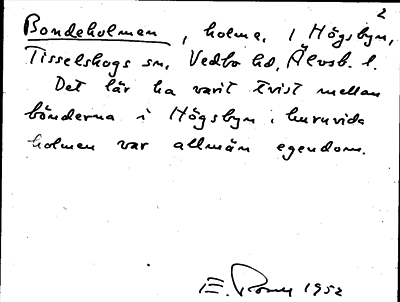 2
Bondeholmen, holme, i Högsbyn,
Tisselskogs sn, Vedbo hd, Älvsb. l.
Det lär ha varit tvist mellan
bönderna i Högsbyn, huruvida
holmen var allmän egendom.
E. 1952